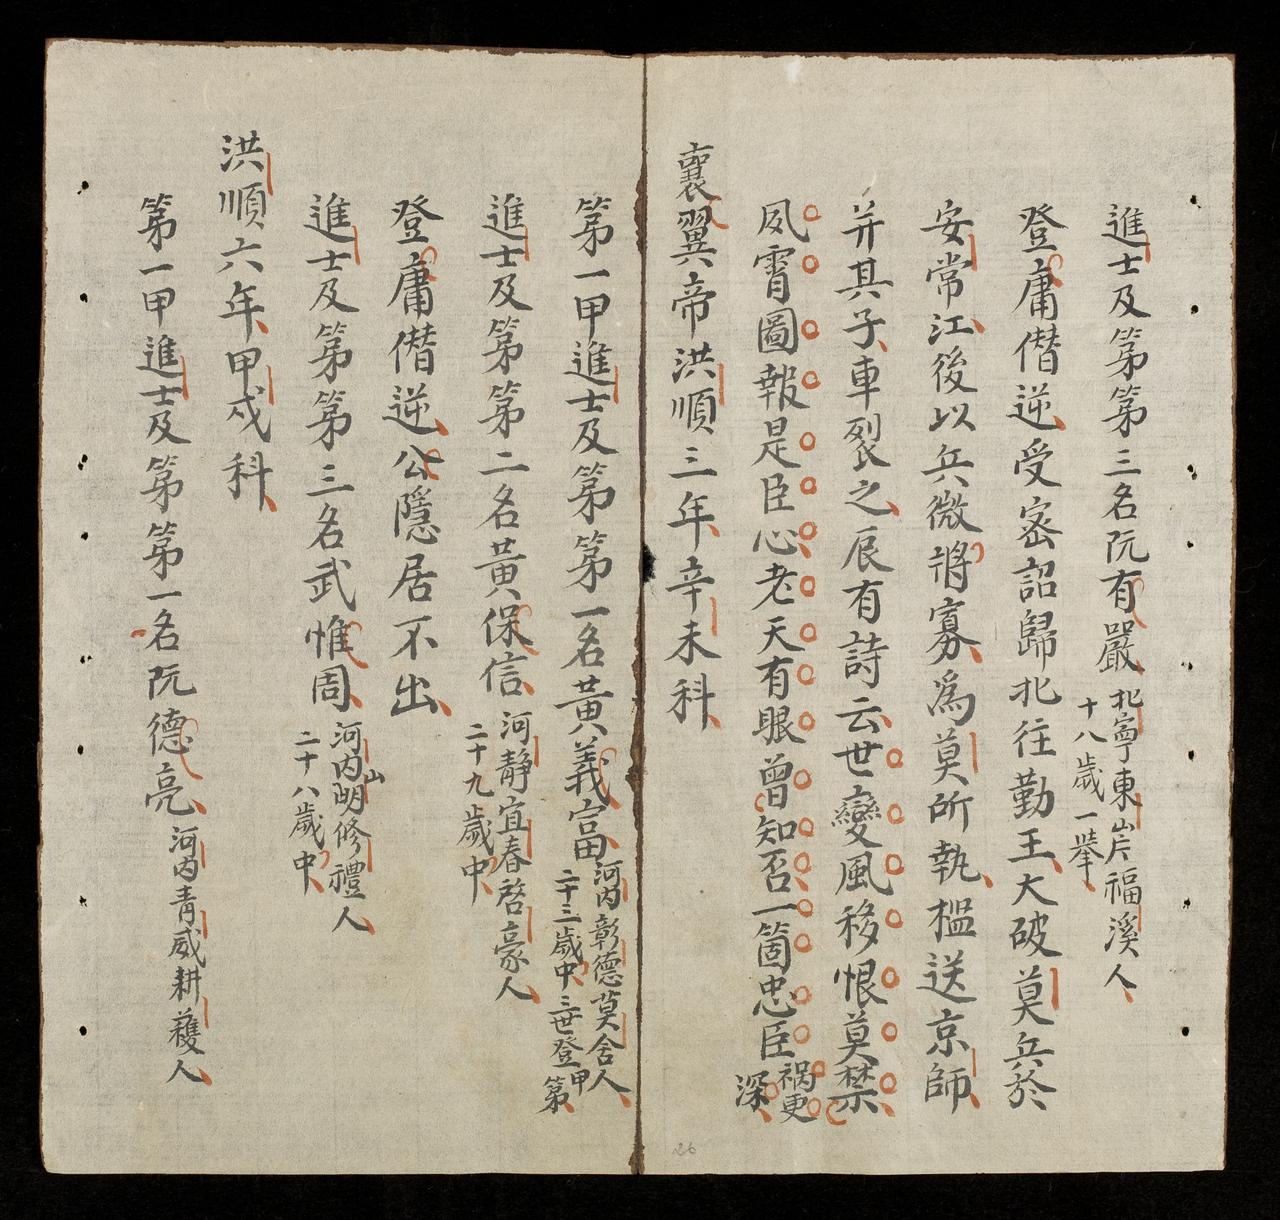 進士及第第三名阮有嚴北寧東岸福溪人
十八歲一舉
登庸僭逆受密詔歸北往勤王大破莫兵於
安常江後以兵微將寡為莫所執檻送京師
并其子車裂之辰有詩云世變風移恨莫禁
夙霄圖報是臣心老天有眼曾知否一箇忠臣禍更
深
襄翼帝洪順三年辛未科
第一甲進士及第第一名黃義富河內彰德莫舍人
二十三歲中三世登甲第
進士及第第二名黃保信河靜宜春啓豪人
二十九歲中
登庸僭逆公隱居不出
進士及第第三名武惟周河內山朗修禮人
二十八歲中
洪順六年甲戌科
第一甲進士及第第一名阮德亮河內青威耕穫人
26